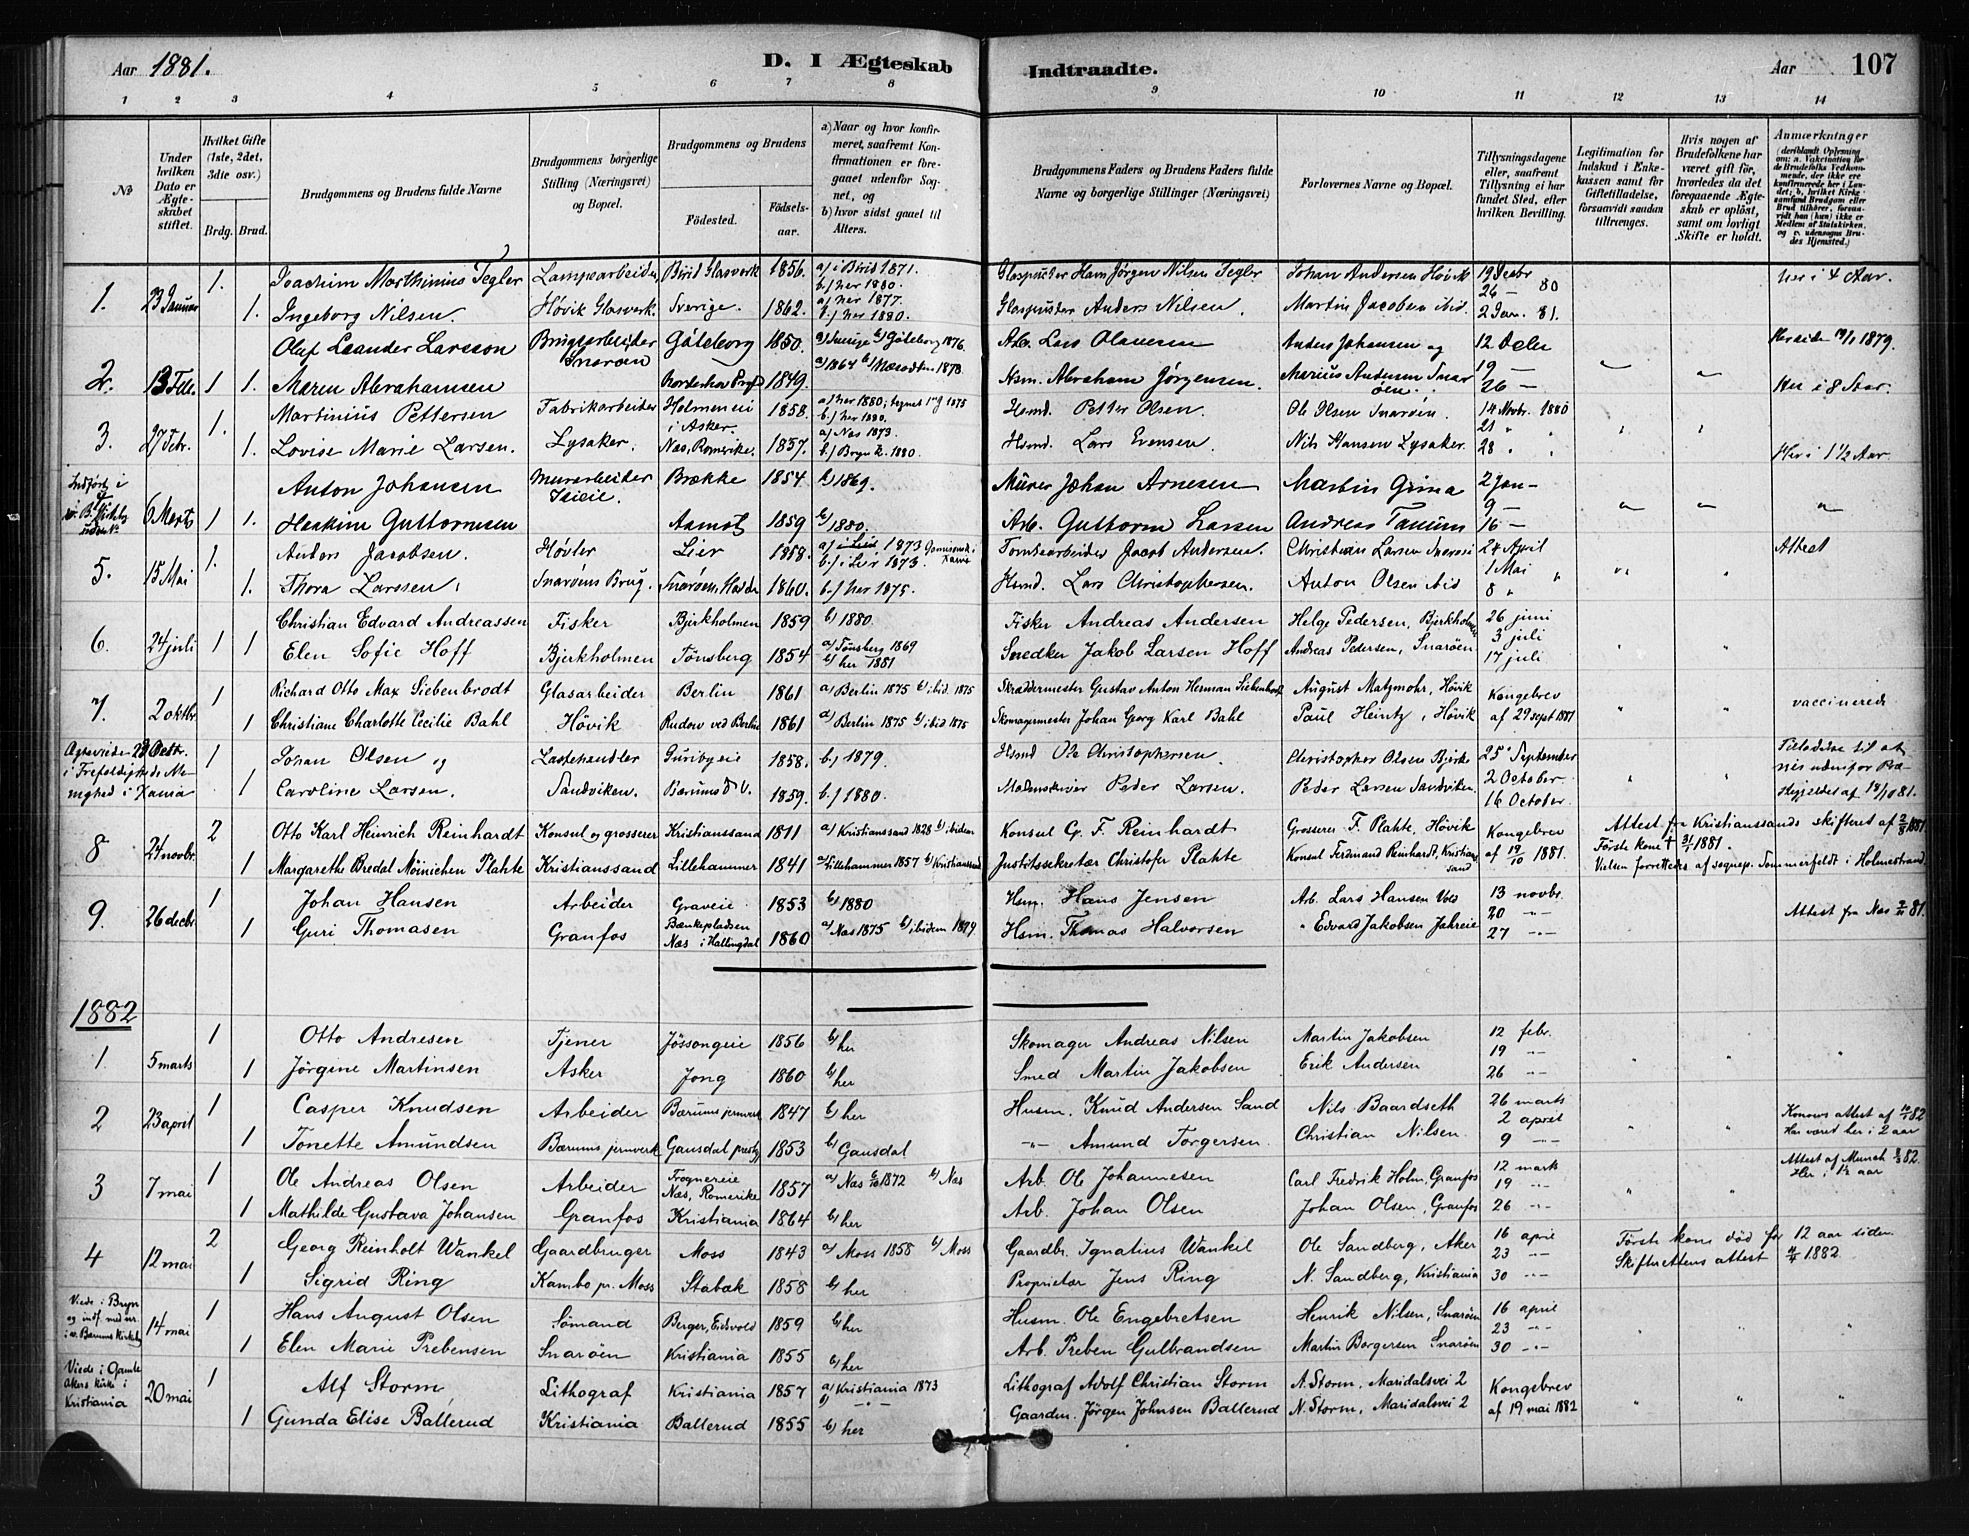 Aar 1881. D. I Ægteskab Indtraadte. Aar 107
1 2 3 4 5 6 7 8 9 10 11 12 13 14
№
Under hvilken Dato er Ægteskabet stiftet.
Hvilket Gifte (1ste, 2det, 3die osv.)
Brdg. Brud.
Brudgommens og Brudens fulde Navne
Brudgommens borgerlige Stilling (Næringsvei) og Bopæl.
Brudgommens og Brudens
Fødested. Fødselsaar.
a) Naar og hvor konfirmeret, saafremt Konfirmationen er foregaaet udenfor Sognet, og
b) hvor sidst gaaet til Alters.
Brudgommens Faders og Brudens Faders fulde Navne og borgerlige Stillinger (Næringsvei)
Forlovernes Navne og Bopæl.
Tillysningsdagene eller, saafremt Tillysning ei har fundet Sted, efter hvilken Bevilling.
Legitimation for Indskud i Enkekassen samt for Giftetilladelse, forsaavidt saadan tiltrænges.
Hvis nogen af Brudefolkene har været gift før, hvorledes da det foregaaende Ægteskab er opløst, samt om lovligt Skifte er holdt.
Anmærkninger (deriblandt Oplysning om: a. Vaccination for de Brudefolks Vedkommende, der ikke ere konfirmerede her i Landet; b, hvilket Kirkesamfund Brudgom eller Brud tilhører, forsaavidt han (hun) ikke er Medlem af Statskirken, og c. udensogns Brudes Hjemsted.)
1. 23 Januar 1. Joachim Marthinius Tegler Lampearbeider Birid Glasverk 1856. a/ i Birid 1871. b/ her 1880. Glaspuster Hans Jørgen Nilsen Tegler Johan Andersen Høvik 19 Decbr 26 — 80 Her i 4 Aar.
1. Ingeborg Nilsen. Høvik Glasverk. Sverige. 1862. a/ her 1877. b/ her 1880. Glaspuster Anders Nilsen. Martin Jacobsen ibid. 2 Jan. 81.
2. 13 Febr. 1 Oluf Leander Larsson Brugsarbeider Snarøen Gøteborg 1850. a/ Sverige b/ Gøteborg 1876. Arb. Lars Olauesen Anders Johansen og 12 19 — Her siden 1879.
1. Maren Abrahamsen 1849. a/ 1864 b/ 1878. Hsm. Abraham Jørgensen. Marius Andersen Snarøen. 26 — Her i 8 Aar.
3. 27 Febr. 1. Martinius Pettersen Fabrikarbeider Holmen ei i Asker. 1858. a/ her 1880; 1875 b/ her 1880. Hsmd. Petter Olsen. Ole Olsen Snarøen. 14 Novbr. 1880 21 "
1. Lovise Marie Larsen. Lysaker. Næs, Romerike. 1857. a/ Næs 1873. b/ Bryn k. 1880. Hsmd. Lars Evensen. Nils Hansen Lysaker. 28 " Her i 1½ Aar.
Indført i B. Kirkebog uden No. 6 Marts 1 Anton Johansen Murarbeider Brække 1854 b/ 1869. Murer Johan Arnesen Martin Grina 2 Jan —
1. Heakine Guttormsen Aamot 1859 b/ 1880. Arb. Guttorm Larsen Andreas Tanum 9 — 16 —
5. 15 Mai 1. Anton Jacobsen. Høvler Lier 1858. a/ i Lier 1873 b/ i Lier 1873. Tomtearbeider Jacob Andersen. Christian Larsen 24 April 1 Mai Attest
1. Thora Larssen. Snarøens Brug. Snarøens Hovder 1860. b/ her 1875. Hsmd. Lars Christophersen. Anton Olsen ibid 8 "
6. 24 juli 1 Christian Edvard Andreassen Fisker Bjerkholmen 1859 b/ 1880. Fisker Andreas Andersen Helge Pedersen, Bjerkholmen 26 juni 3 juli
1 Elen Sofie Hoff Bjerkholmen Tønsberg 1854 a/ Tønsberg 1869 b/ her 1881 Snedker Jakob Larsen Hoff Andreas Pedersen, Snarøen 17 juli
7. 2 oktbr. 1 Richard Otto Max Siebenbrodt Glasarbeider Berlin 1861 a/ Berlin 1875 b/ ibid. 1875 Skræddermester Gustav Anton Herman Siebenbrodt August Matzmohr, Høvik Kongebrev vaccinerede
1 Christiane Charlotte Cecilie Bahl Høvik Rudow ved Berlin 1861 a/ Berlin 1875 b/ ibid 1875 Skomagermester Johan Georg Karl Bahl Paul Heintz, Høvik af 29 sept 1881
Ægteviede 23 Octbr. i Trefoldigheds Menighed i Xania 1 Johan Olsen og Lastehandler Guribyeie 1858. b/ 1879. Hsmd Ole Christophersen. Christopher Olsen Bjerke 25 September 2 October Tilladelse til at vies udenfor Præstegjeldet af 18/10 81.
1 Caroline Larsen. Sandviken. Bærums V. 1859. b/ 1880. Peder Larsen. Peder Larsen Sandviken. 16 October.
8 24 novbr. 2 Otto Karl Heinrich Reinhardt Konsul og grosserer Kristianssand 1811 a/ Kristianssand 1828 b/ ibidem Konsul G. F. Reinhardt Grosserer F. Plahte, Høvik Kongebrev Attest fra Kristianssands skifteret af 1881 Første kone † 1881.
1 Margarethe Bredal Möinichen Plahte Kristianssand Lillehammer 1841 a/ Lillehammer 1857 b/ Kristianssand Justitssekretær Christofer Plahte Konsul Ferdinand Reinhardt, Kristianssand af 19/10 1881. Vielsen forrettedes af sognepr. Sommerfeldt i Holmestrand.
9. 26 decbr. 1 Johan Hansen Arbeider Graveie 1853 b/ 1880 Hsm. Hans Jensen Arb. Lars Hansen Vold 13 novbr. 20 —"— Attest fra Næs 81.
1 Guri Thomasen Granfos Bænkepladsen Næs i Hallingdal 1860 a/ Næs 1875 b/ ibidem 1879 Hsm. Thomas Halvorsen " Edvard Jakobsen Jahreie 27 —"—
1882
1. 5 marts 1 Otto Andresen Tjener Jøssongeie 1856 b/ her Skomager Andreas Nilsen Martin Jakobsen 12 febr. 19 —"—
1 Jørgine Martinsen Asker Jong 1860 b/ her Smed Martin Jakobsen Erik Andersen 26 —"—
2 23 april 1 Casper Knudsen Arbeider Bærums jernverk 1847 b/ her Husm. Knud Andersen Sand Nils Baardseth 26 marts 2 april Konows attest af 82
1 Tonette Amundsen Bærums jernverk Gausdal prestgj. 1853 b/ Gausdal —"— Amund Torgersen. Christian Nilsen. 9 —"— Har været her i 2 aar
3 7 mai 1 Ole Andreas Olsen Arbeider Frognereie Næs, Romerike 1857 a/ Næs 1872 b/ Næs Arb. Ole Johannesen Carl Fredrik Holm, Granfos 12 marts 19 —"— Attest af Munch 82. Her i 1½ aar
1 Mathilde Gustava Johansen Granfos Kristiania 1864 b/ her Arb. Johan Olsen Johan Olsen, Granfos 26 —"—
4 12 mai 2 Georg Reinholt Wankel Gaardbruger Moss 1843 a/ Moss 1858 b/ Moss Gaardbr. Ignatius Wankel Ole Sandberg, Aker 16 april 23 —"— Første kone død for 12 aar siden
1 Sigrid Ring Kambo pr. Moss Stabæk 1858 b/ her Proprietær Jens Ring N. Sandberg, Kristiania 30 —"— Skifterettens attest 1882.
Viede i Bryn og indf. med nr. i v. Bærums Kirkebog 14 mai 1 Hans August Olsen Sømand Berger, Eidsvold 1859 b/ her Husm. Ole Engebretsen Henrik Nilsen, Snarøen 16 april 23 —"—
1 Elen Marie Prebensen Snarøen Kristiania 1855 b/ her Arb. Preben Gulbrandsen Martin Borgersen Snarøen 30 —"—
Viede i Gamle Akers kirke i Kristiania 20 mai 1 Alf Storm Lithograf Kristiania 1857 a/ Kristiania 1873 b/ —"— Lithograf Adolf Christian Storm N. Storm, Maridalsvei 2 Kongebrev
1 Gunda Elise Ballerud Kristiania Ballerud 1855 b/ her Gaardm. Jørgen Johnsen Ballerud N. Storm, Maridalsvei 2 af 19 mai 1882